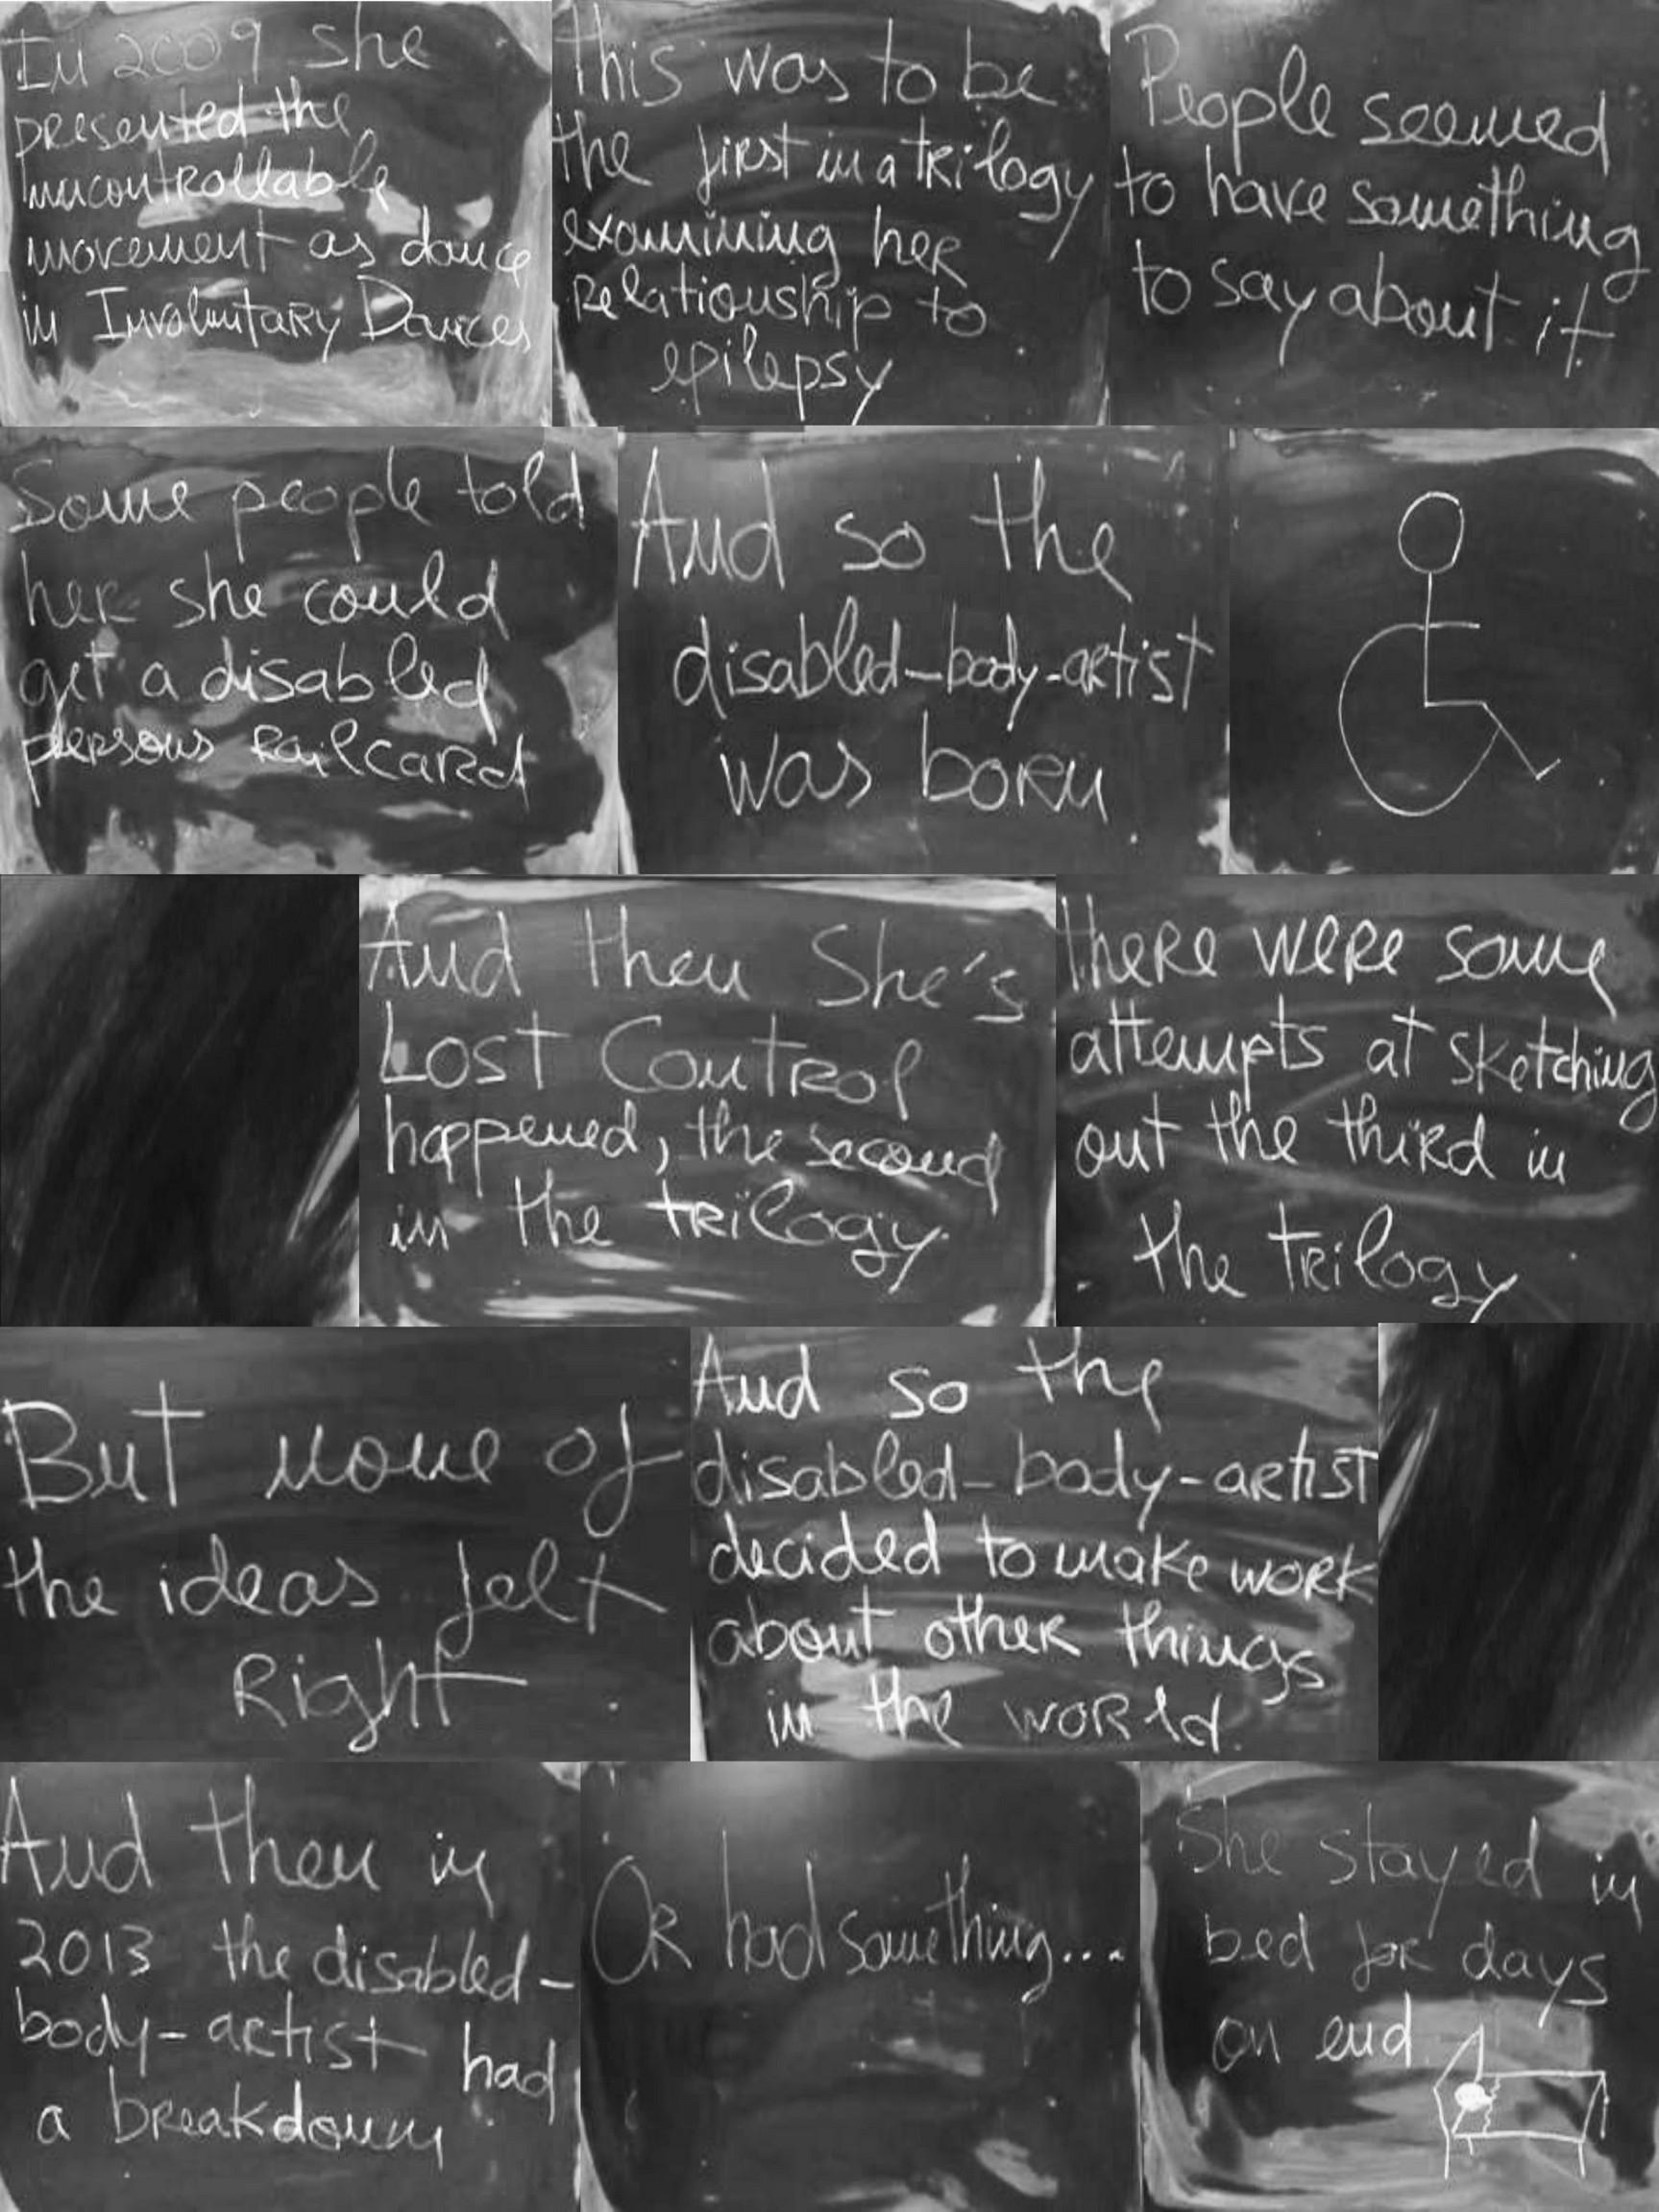 In 2009 she
presented the
uncontrollable
movement as dance
in Involuntary Dances
This was to be
the first in a trilogy
examining her
relationship to
epilepsy
People seemed
to have something
to say about it
Some people told
her she could
get a disabled
persons Railcard
And so the
disabled-body-artist
was born
And then She's
Lost Control
happened, the second
in the trilogy.
There were some
attempts at sketching
out the third in
the trilogy
But none of
the ideas felt
Right.
And so the
disabled-body-artist
decided to make work
about other things
in the world.
And then in
2013 the disabled-
body-artist had
a breakdown
Or had something...
She stayed in
bed for days
on end